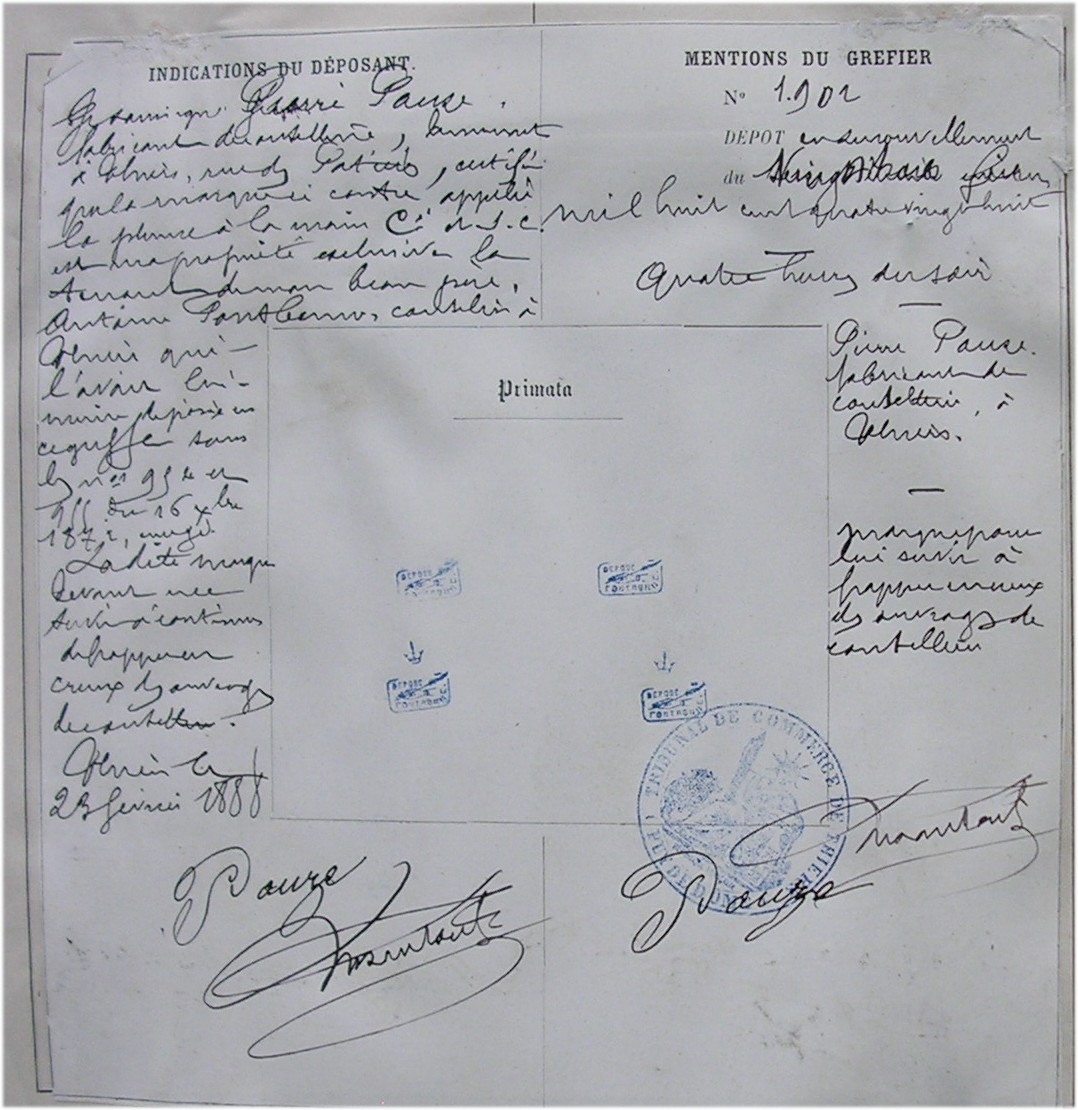 INDICATIONS DU DÉPOSANT.
Pierre Pauze,
fabricant de coutellerie, demeurant
à Thiers, rue des, certifie
que la marque ci contre, appelée
la plume à la main
est ma propriété exclusive la
tenant de mon beau père,
Antoine coutelier à
Thiers qui
l'avait lui-
même déposée en
ce greffe sous
les nos et
du 16 xbre
187
La dite marque
devant me
servir à continuer
de frapper en
creux des ouvrages
de coutellerie.
Thiers le
23 février 1888
Pauze
MENTIONS DU GREFIER
No 1.902
DÉPOT en renouvellement
du Vingt trois février
mil huit cent quatre vingt huit
Quatre heures du soir
Pierre Pauze.
fabricant de
coutellerie, à
Thiers.
marque pour
lui servir à
frapper en creux
des ouvrages de
coutellerie
Primata
DEPOSE
DEPOSE
DEPOSE
DEPOSE
TRIBUNAL DE COMMERCE DE THIERS
PUY DE DOME
Pauze